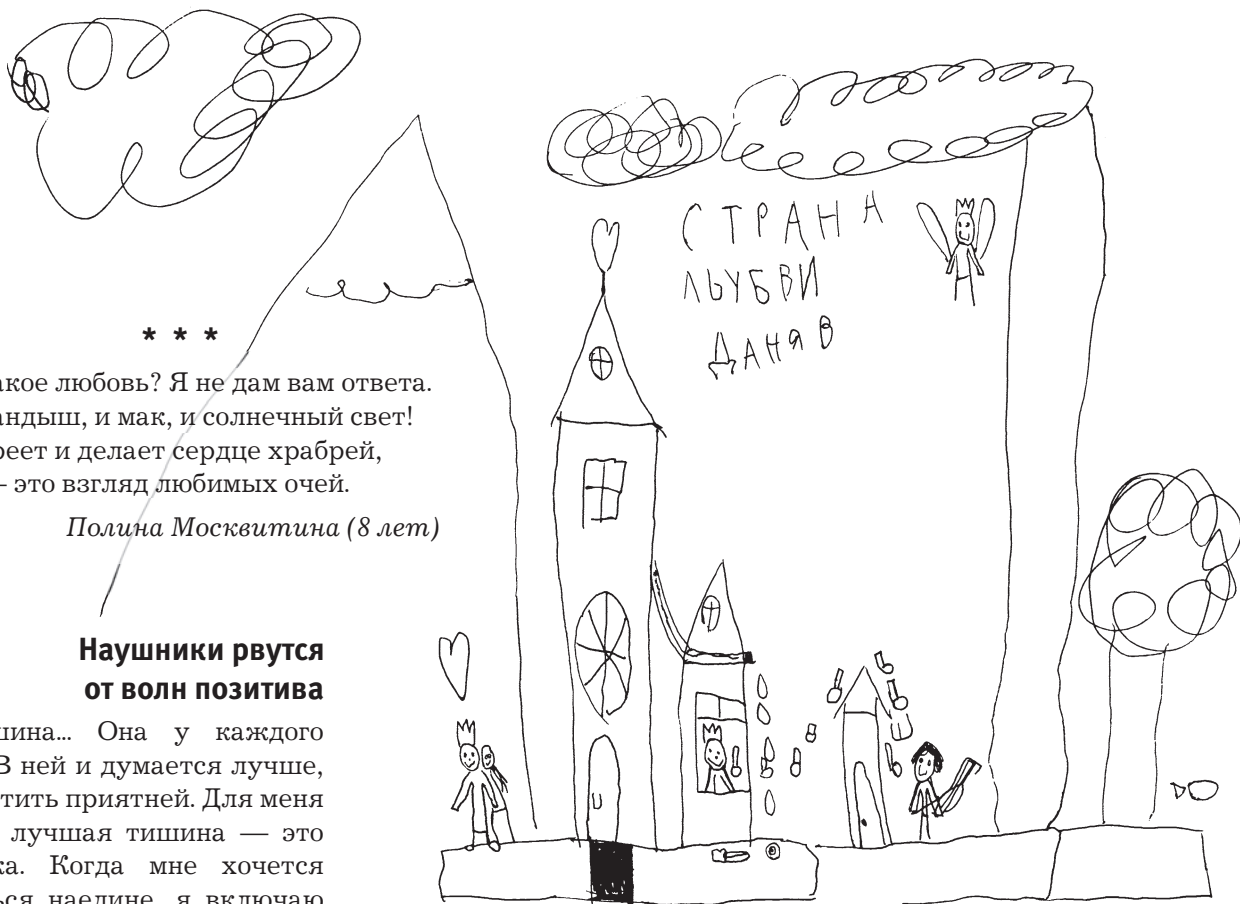 * * *
акое любовь? Я не дам вам ответа.
андыш, и мак, и солнечный свет!
реет и делает сердце храбрей,
– это взгляд любимых очей.
Полина Москвитина (8 лет)
Наушники рвутся
от волн позитива
шина... Она у каждого
В ней и думается лучше,
тить приятней. Для меня
лучшая тишина — это
ка. Когда мне хочется
ься наедине, я включаю
СТРАНА
ЛЬУБВИ
ДАНЯ В